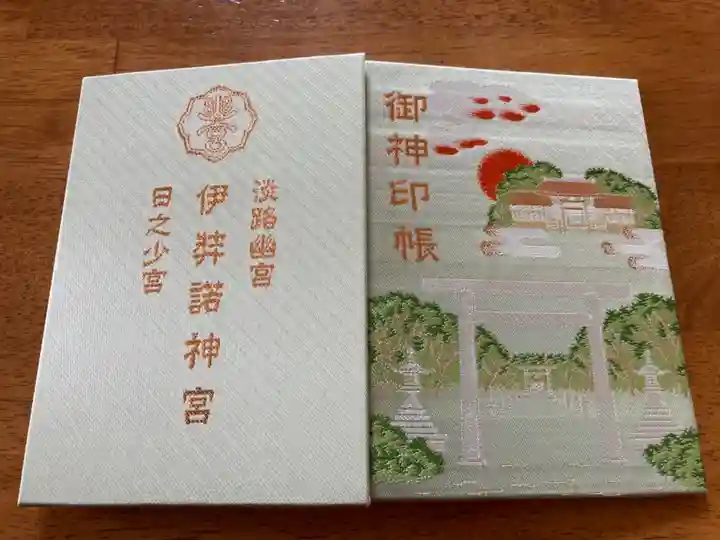 御神印帳
淡路幽宮
伊弉諾神宮
日之少宮